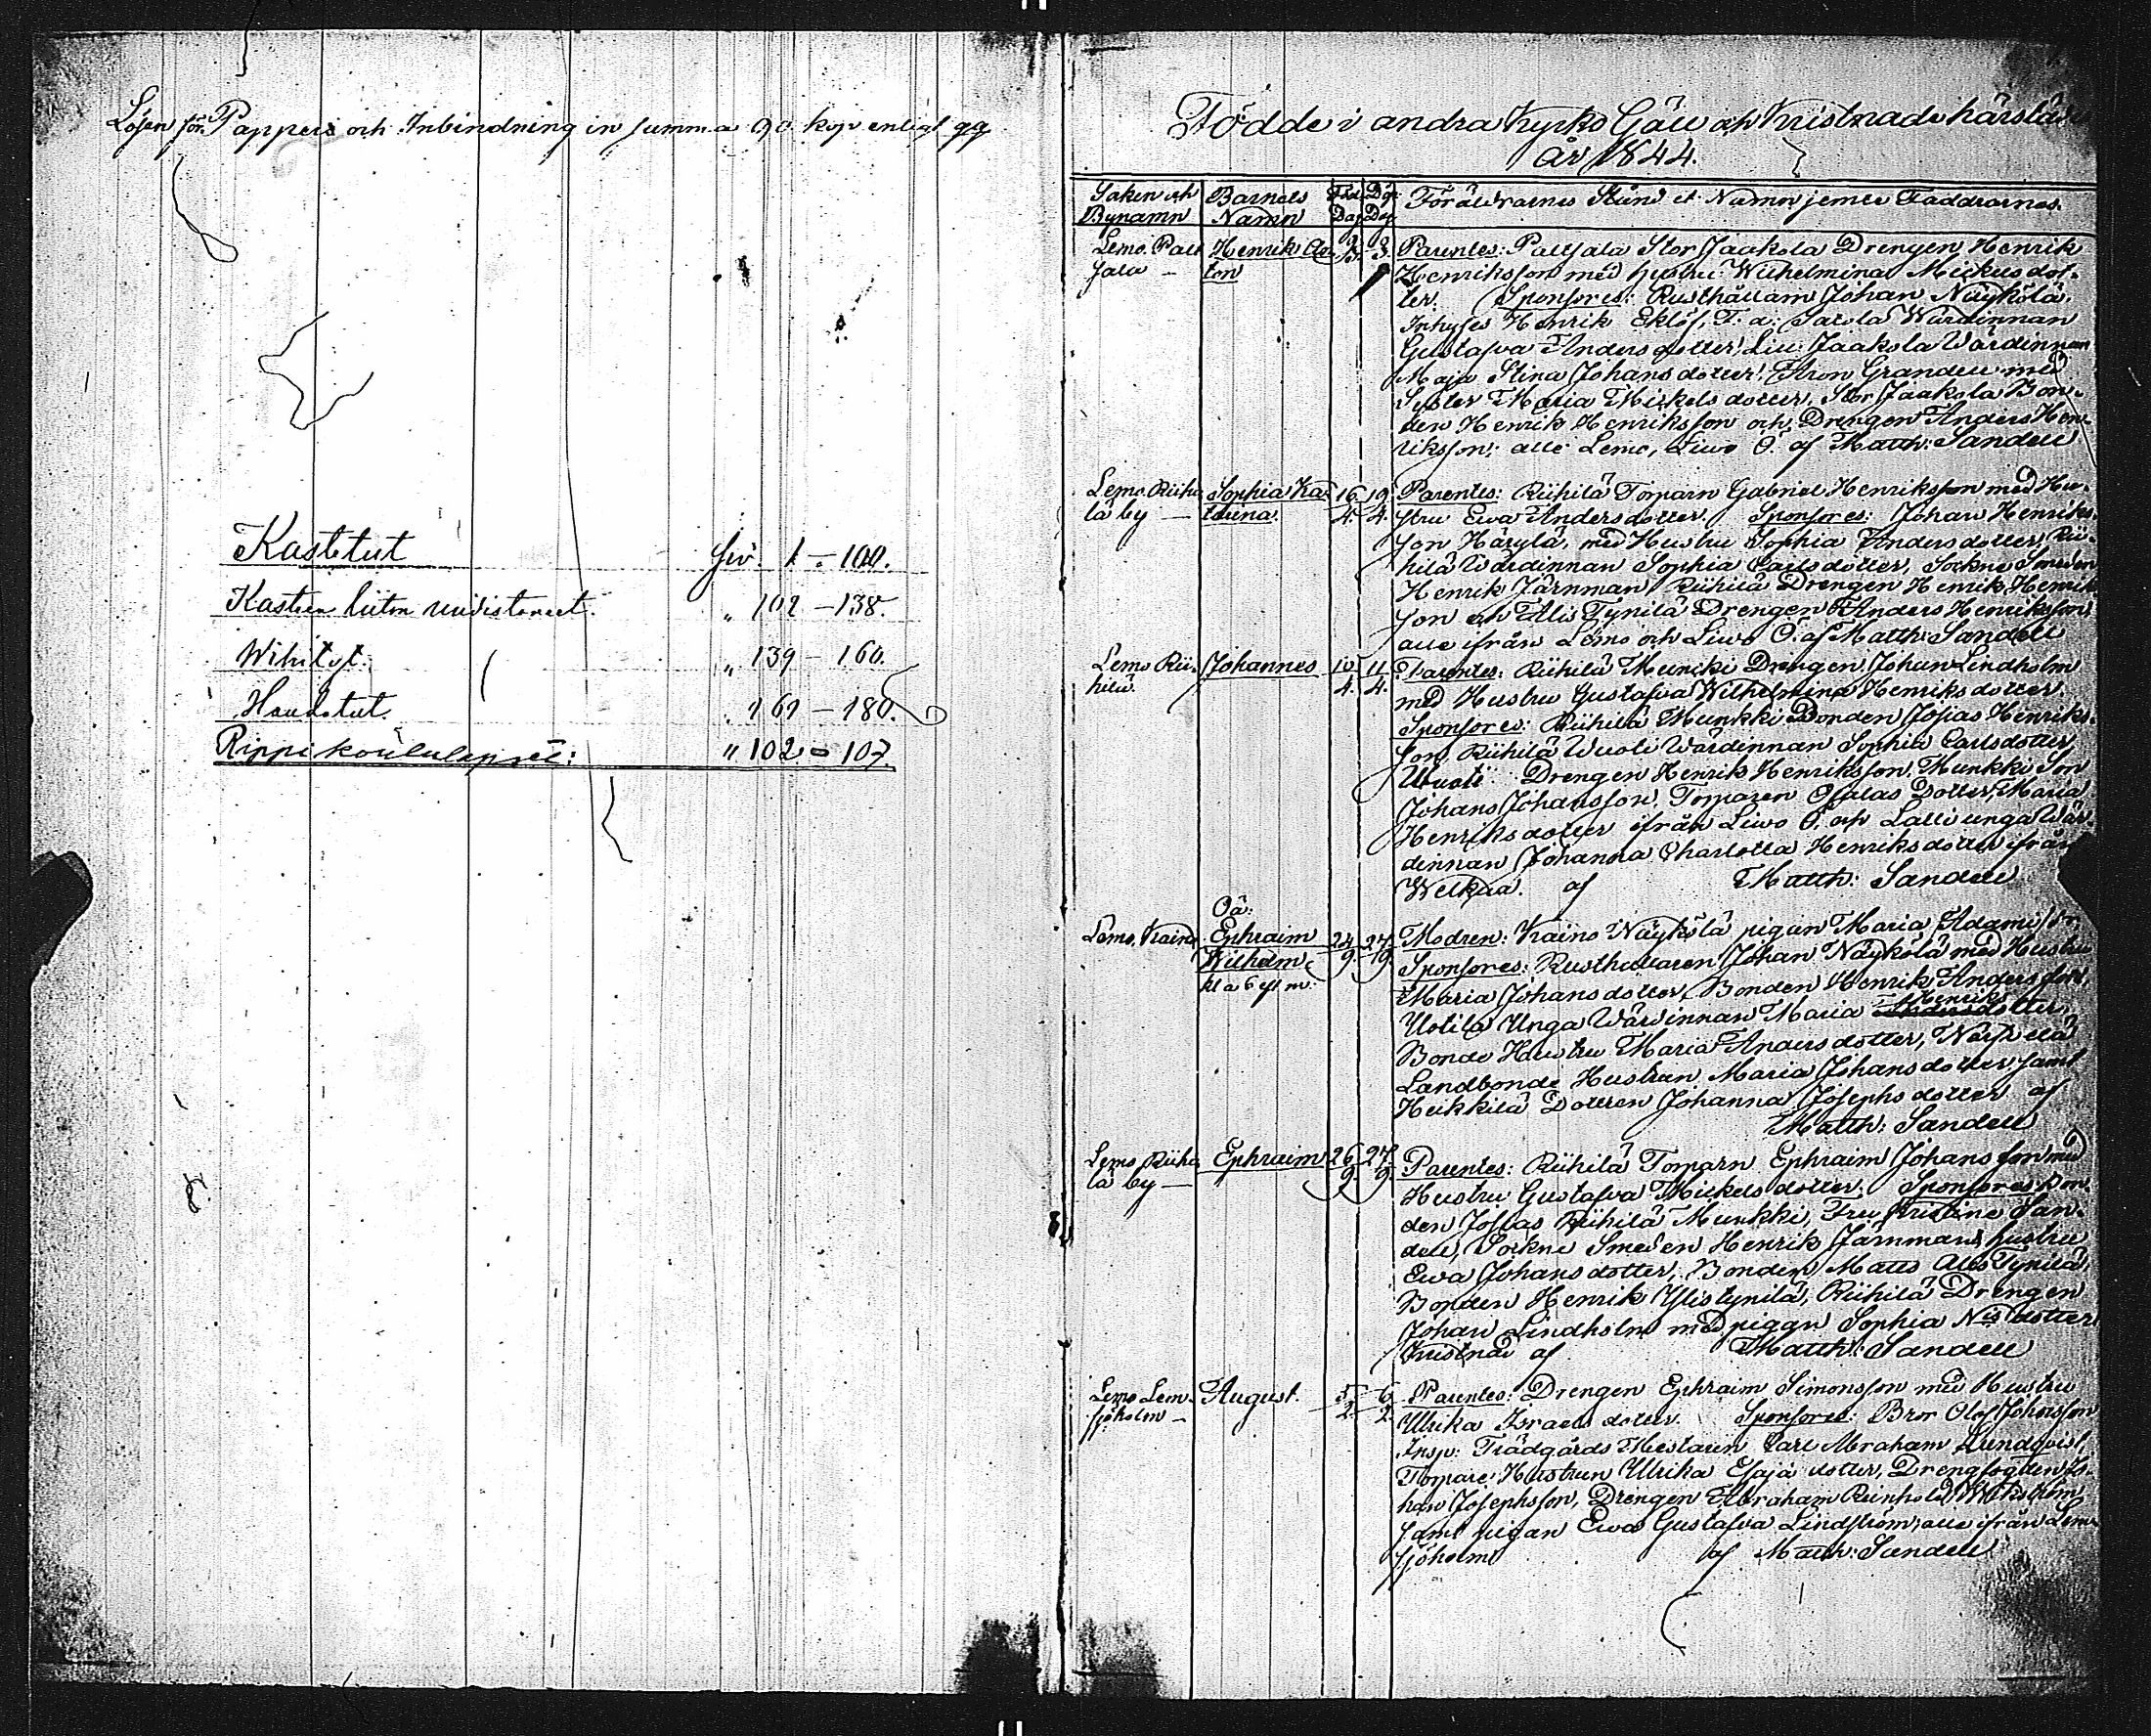 Lösen för Pappers och Inbindning in summa 90 kop enligt qq
Kastetut siv. 1 - 100.
Kasteen liiton uudistaneet. " 102 - 138.
Wihityt. " 139 - 160.
Haudatut. " 161 - 180.
Rippikoululapset: " 102 - 107.
Födde i andra Kyrko Gäll och Kristnade härstädes
år 1844.
Soken och Barnets Föd. Döp. Föräldrarnes Stånd et Namn jemte Faddrarnes.
Bynamn Namn Dag Dag
Lemo Palt Henrik An 3. Parentes: Paltsala Stor Jaakola Drengen Henrik
sala - ton Henriksson med hustru Wilhelmina Mickelsdot-
ter. Sponsores: Rusthållarn Johan Näykölä.
Inhyses Henrik Eklöf, Wärdinnan
Gustafva Andersdotter, Jaakola Wärdinnan
Maja Stina Johansdotter, Aron Grandell med
Syster Maria Mickelsdotter, Stor Jaakola Bon-
den Henrik Henriksson och Drengen Anders Hen-
riksson; alle Lemo, Liwo Ö. af Matth: Sandell
Lemo Riihi Sophia Ka- 16 19 Parentes: Riihilä Torparn Gabriel Henriksson med Hu-
lä by - tarina. 4. 4. stru Ewa Andersdotter. Sponsores: Johan Henriks-
son Härylä, med Hustru Sophia Andersdotter, Rii-
hilä Wärdinnan Sophia Carlsdotter, Sockne Smeden
Henrik Järnman, Riihilä Drengen Henrik Henrik
son och Alis Tynilä Drengen Anders Henriksson,
alle ifrån Lemo och Liwo Ö. af Matth: Sandell
Lemo Rii- Johannes 10 11 Parentes: Riihilä Munkki Drengen Johan Lindholm
hilä. 4. 4. med Hustru Gustafva Wilhelmina Henriksdotter.
Sponsores: Riihilä Munkki Bonden Josias Henriks-
son, Riihilä Wuoti Wärdinnan Sophia Carlsdotter
Wuoti Drengen Henrik Henriksson, Munkki Son
Johans Johansson, Torparen Dotter, Maria
Henriksdotter ifrån Liwo Ö. och Lalli unga Wär-
dinnan Johanna Charlotta Henriksdotter ifrån
Welkua. af Matth: Sandell
Oä:
Lemo, Kaino Ephraim 24 27 Modren: Kaino Näykölä pigan Maria Adams dr,
Wilhelm. 9. 9. Sponsores: Rusthållaren Johan Näykölä med Hustru
kl a 6 eft m: Maria Johansdotter, Bonden Henrik Andersson,
Uotila Unga Wärdinnan Maria Henriks Andersdotter,
Bonde Hustru Maria Andersdotter,
Landbonde Hustrun Maria Johansdotter samt
Heikkilä Dottren Johanna Josephsdotter af
Matth: Sandell
Lemo Riihi Ephraim 26 27. Parentes: Riihilä Torparn Ephraim Johansson med
lä by - 9. 9. Hustru Gustafva Mickelsdotter. Sponsores: Bon-
den Josias Riihilä Munkki, Fru Kristine San-
dell, Sockne Smeden Henrik Järnmans hustru
Ewa Johansdotter, Bonden Matts Alis Tynilä,
Bonden Henrik Ylistynilä, Riihilä Drengen
Johan Lindholm med pigan Sophia Nilsdotter
Kristnad af Matth: Sandell
Lemo Lem- August. 5 6 Parentes: Drengen Ephraim Simonsson med Hustru
sjöholm - 2. 2. Ulrika Israelsdotter. Sponsores: Bror Olof Johansson
Insp: Trädgårds Mestaren Carl Abraham Lundqvist,
Torpare Hustrun Ulrika Esajædotter, Drengfogden Jo-
han Josephsson, Drengen Abraham Reinhold Wikström
samt pigan Ewa Gustafva Lindström, alle ifrån Lem-
sjöholm af Matth: Sandell